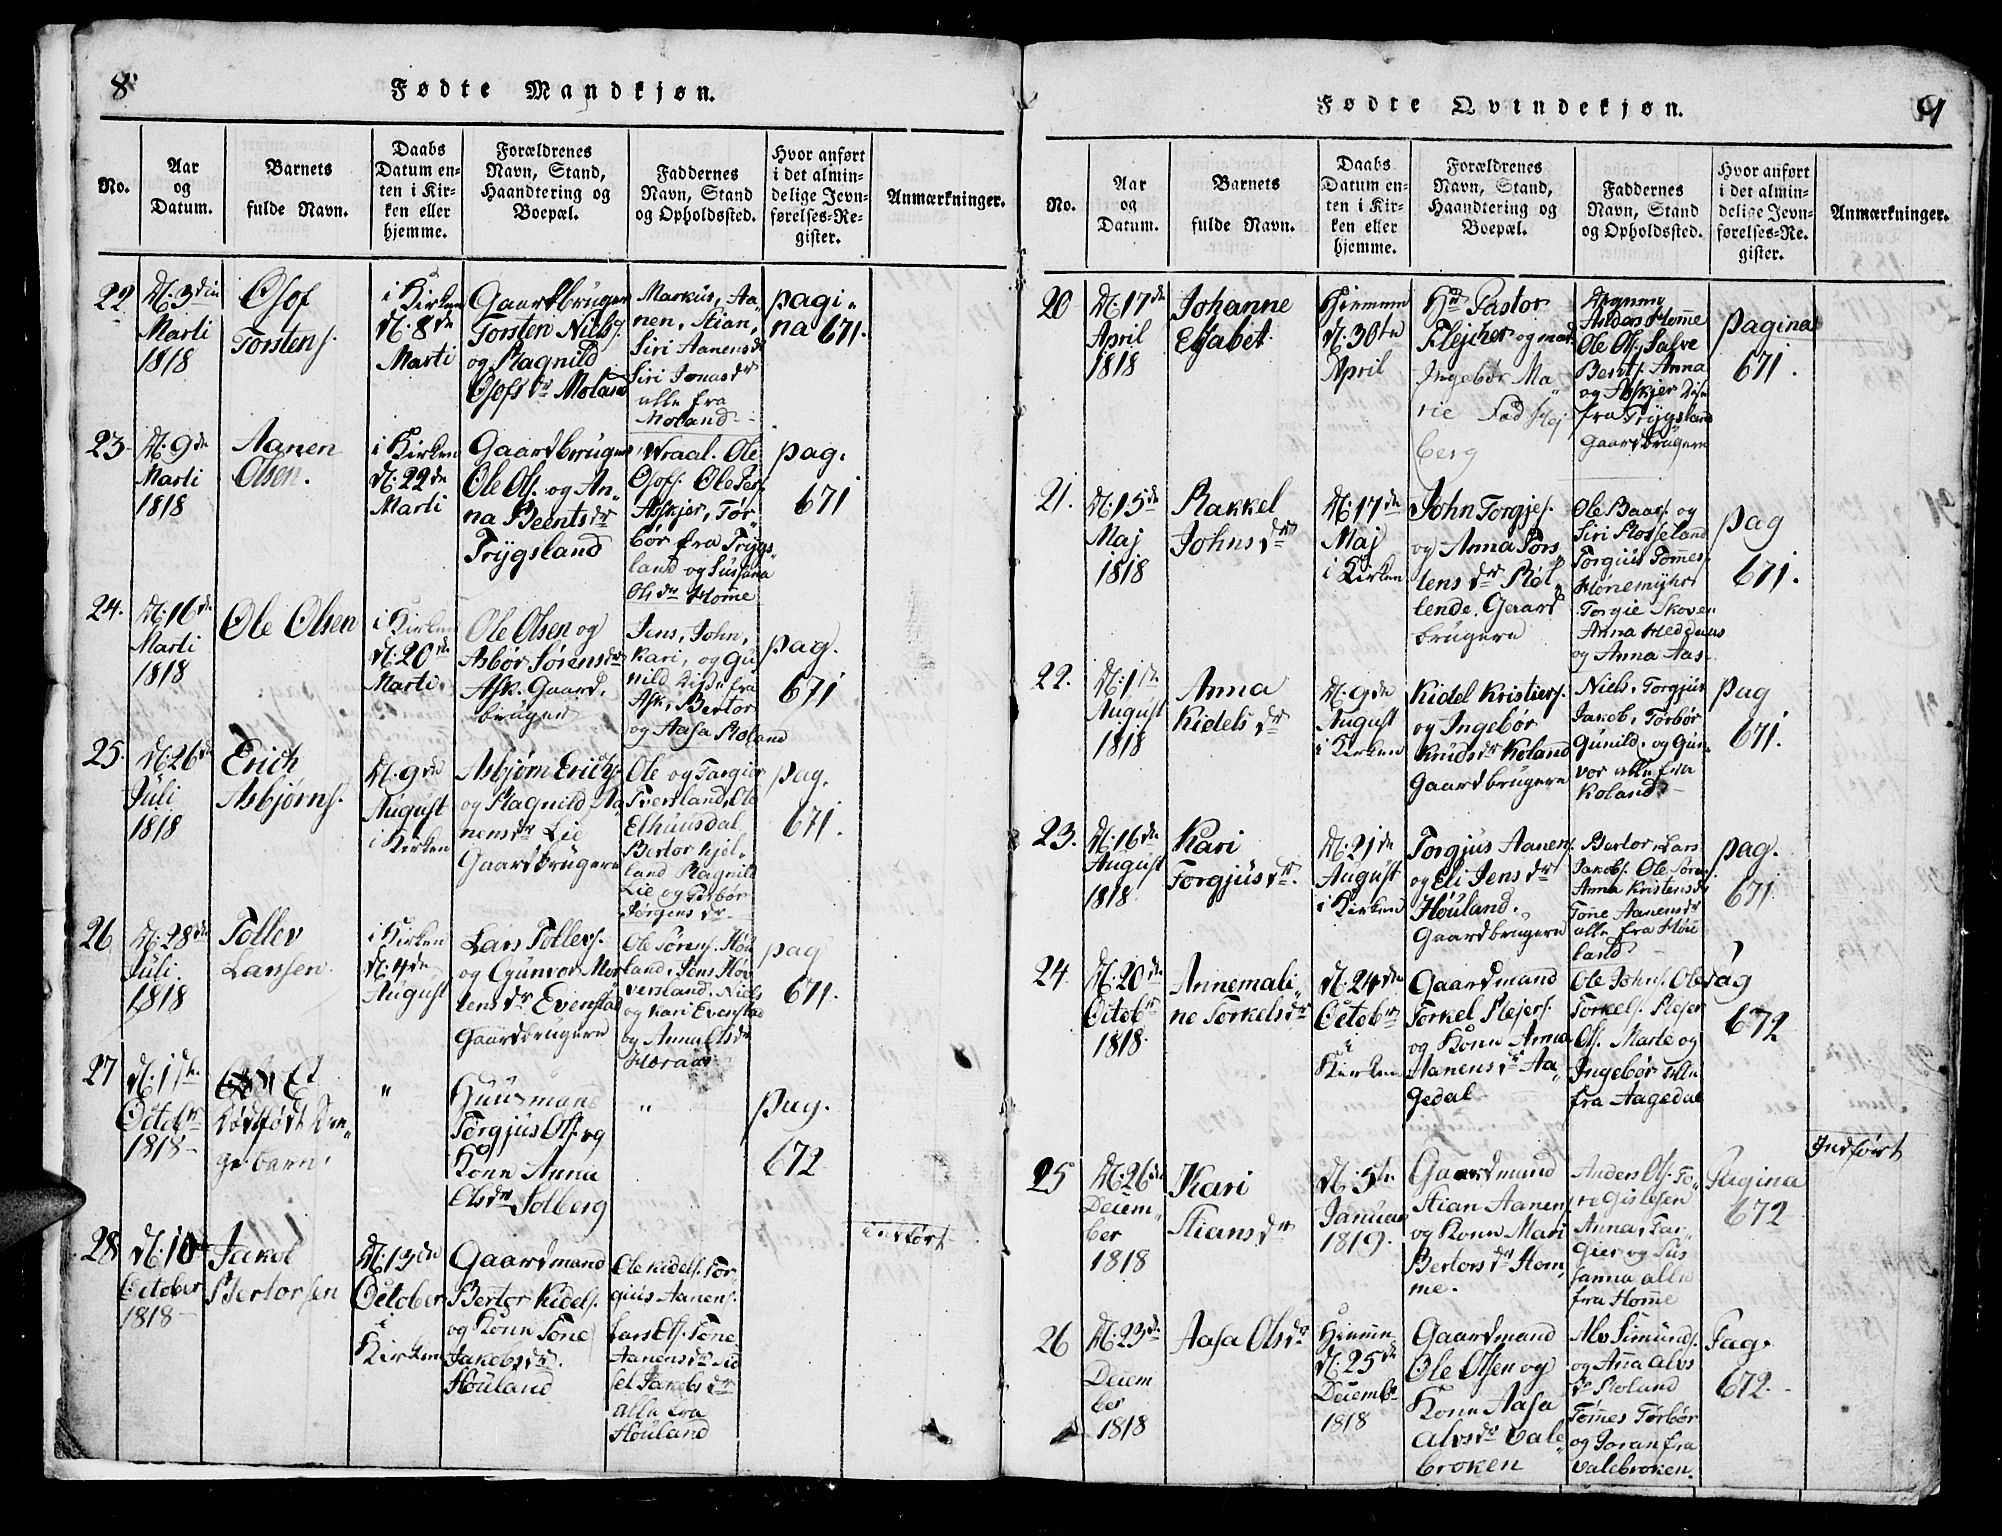 8
Fødte Mandkjøn.
No.
Aar
og
Datum.
Barnets
fulde Navn.
Daabs
Datum en-
ten i Kir-
ken eller
hjemme.
Forældrenes
Navn, Stand,
Haandtering og
Boepæl.
Faddernes
Navn, Stand
og Opholdssted.
Hvor anført
i det almin-
delige Jevn-
førelses-Re-
gister.
Anmærkninger.
22
D. 3die
Marti
1818
Osof
Torstens.
i Kirken
D. 8de
Marti
Gaardbruger
Torsten Niels.
og Ragnild
Osofs dr Moland
Markus, Aa-
nen, Stian,
Siri Aanens dr
Siri Jonas dr
alle fra
Moland
pagi-
na 671.
23
D. 9de
Marti
1818
Aanen
Olsen.
i Kirken
D. 22de
Marti
Gaardbruger
Ole Ols. og An-
na Beents dr
Trygsland
Wraal. Ole
Osofs. Ole Per.
Askjer, Tør-
bør fra Trygs-
land og Sussana
Ols dr Homme
pag.
671
24.
D. 16de
Marti
1818
Ole Olsen
i Kirken
D. 20de
Marti
Ole Olsen og
Asbør Sørens dr
Ask. Gaard-
bruger
Jens, John,
Kari, og Gu-
nild
fra
Ask, Bertor
og Aasa Roland
pag.
671
25.
D. 26de
Juli
1818
Erich
Asbjørns.
D. 9de
August
i Kirken
Asbjørn Erichs.
og Ragnild Aa-
nens dr Lie
Gaardbrugere
Ole og Targier
Tversland, Ole
Elhuusdal
Bertor Kjel-
land Ragnild
Lie og Torbør
Jørgens dr
pag.
671.
26
D. 28de
Juli
1818
Tollev
Larsen
i Kirken
D. 4de
August
Lars Tollevs.
og Gunvor Mor-
tens dr Evenstad
Gaardbrugere
Ole Sørens. Høi-
land, Jens Høv-
versland. Niels
og Kari Evenstad
og Anna Ols dr
Horaas
pag
671.
27
D. 1ste
Octobr
1818
Et
dødfødt Dren-
gebarn
"
Huusmand
Torgjus Ols. og
Kone Anna
Ols dr Solberg
"
pag.
672
28
D. 10de
October
1818
Jakob
Bertorsen
D. 13de
October
i
Kirken
Gaardmand
Bertor Kidels.
og Kone Tone
Jakobs dr
Høuland
Ole Kidels. Tor-
gius Aanens.
Lars Ols. Tone
Aanens dr Sid-
sel Jakobs dr
alle fra
Høuland
indført
Fødte Qvindekjøn.
9
No.
Aar
og
Datum.
Barnets
fulde Navn.
Daabs
Datum en-
ten i Kir-
ken eller
hjemme.
Forældrenes
Navn, Stand,
Haandtering og
Boepæl.
Faddernes
Navn, Stand
og Opholdssted.
Hvor anført
i det almin-
delige Jevn-
førelses-Re-
gister.
Anmærkninger.
20
D. 17de
April
1818
Johanne
Elsabet
Hiemme
D. 30te
April
Hr Pastor
Flejcher og mad.
Ingebor Ma-
rie Fadshej
berg
Anders Homme
Ole Ols. Salve
Bents. Anna
og Askjer
fra Trygsland
Gaardbrugere
pagina
671.
21.
D. 15de
Maj
1818
Rakkel
Johns dr
D. 17de
Maj
i Kirken
John Torgjes.
og Anna Tors-
tens dr Røl-
lende. Gaard
brugere
Ole Baars. og
Siri Rosseland
Torgius Tommes.
Honemyhr
Torgie Skoven
Anna Heddens
og Anna Aas
pag
671.
22.
D. 1ste
August
1818
Anna
Kidels dr
D. 9de
August
i Kirken
Kidel Kristiens.
og Ingebor
Knuds dr Koland
Gaardbrugere
Niels, Torgjus
Jakob, Torbør
Gunild, og Gun-
vor alle fra
Koland
pag
671.
23.
D. 16de
August
1818
Kari
Torgjus dr
D. 21de
August
i Kirken
Torgjus Aanens.
og Eli Jens dr
Høuland.
Gaardbrugere
Bertor, Lars
Jakobs. Ole Sørens.
Anna Kristens dr
Tone Aanens dr
alle fra Høu
land
pag.
671
24
D. 20de
Octobr
1818
Annemali-
ne Torkels dr
D. 24de
Octobr
i
Kirken
Gaardmand
Torkel Rejers.
og Kone Anna
Aanens dr Aa-
gedal
Ole Johns. Ole
Torkels. Rejer
Ols. Marte og
Ingebør alle
fra Aagedal
Pag
672
25
D. 26de
Decem-
ber
1818
Kari
Stians dr
D. 5te
Januar
1819.
Gaardmand
Stian Aanens.
og Kone Mari
Bertors dr Hom-
me.
Anders Ols. To-
re Gislesen
Anna, Tar-
gier og Sus-
sanna alle
fra Homme
Pagina
672
Indført
26
D. 23de
Decem
ber
1818
Aasa Ols dr
Hiemme
D. 25de
Decembr
1818
Gaardmand
Ole Olsen og
Kone Aasa
Alvs dr Vale-
broken
Alv Simunds.
og Anna Alvs
dr Roland
Tomes Tørbør
og Joran fra
Valebroken.
Pag.
672.